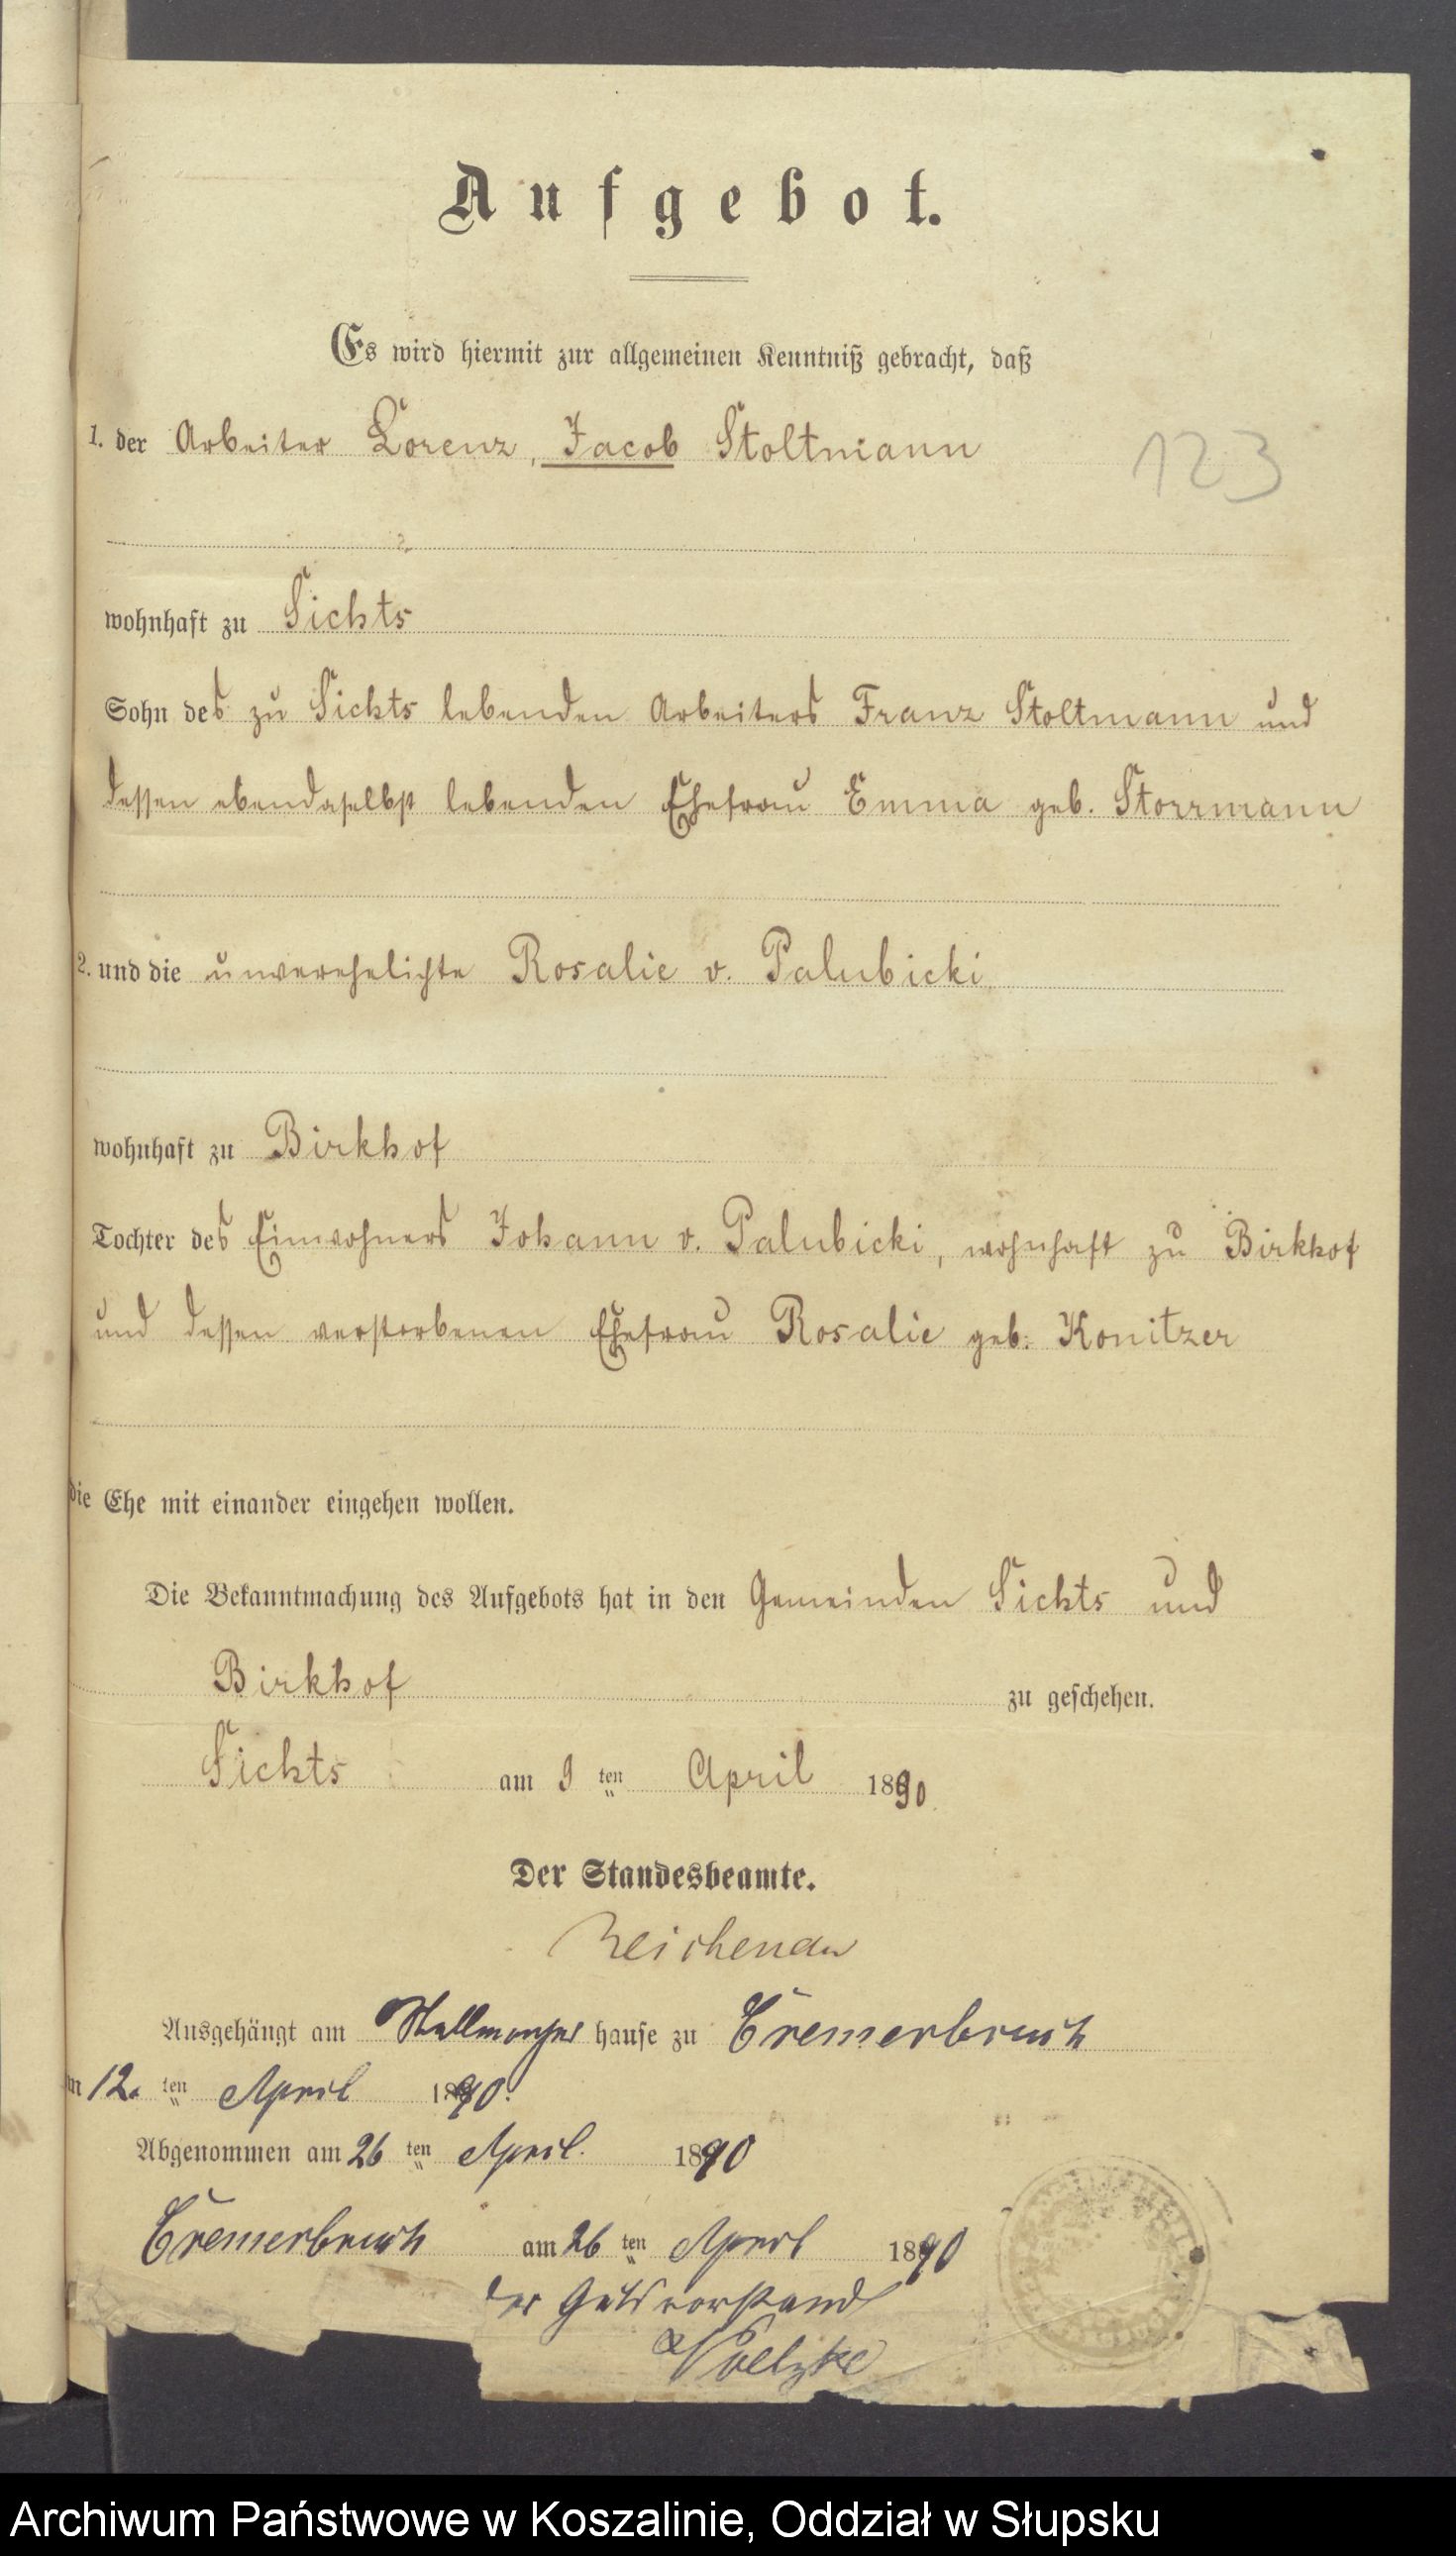 Aufgebot.
Es wird hiermit zur allgemeinen Kenntniß gebracht, daß
1. der Arbeiter Lorenz, Jacob Stoltmann
123
wohnhaft zu Sichts
Sohn des zu Sichts lebenden Arbeiters Franz Stoltmann und
dessen ebendaselbst lebenden Ehefrau Emma geb. Storrmann
2. und die unverehelichte Rosalie v. Palubicki
wohnhaft zu Birkhof
Tochter des Einwohners Johann v. Palubicki, wohnhaft zu Birkhof
und dessen verstorbenen Ehefrau Rosalie geb. Konitzer
die Ehe mit einander eingehen wollen.
Die Bekanntmachung des Aufgebots hat in den Gemeinden Sichts und
Birkhof zu geschehen.
Sichts am 9 ten April 1890
Der Standesbeamte.
Reichenau
Ausgehängt am hause zu Cremerbruch
12. ten April 1890.
Abgenommen am 26 ten April. 1890
Cremerbruch am 26 ten April 1890
der Gutsvorstand
Archiwum Państwowe w Koszalinie, Oddział w Słupsku